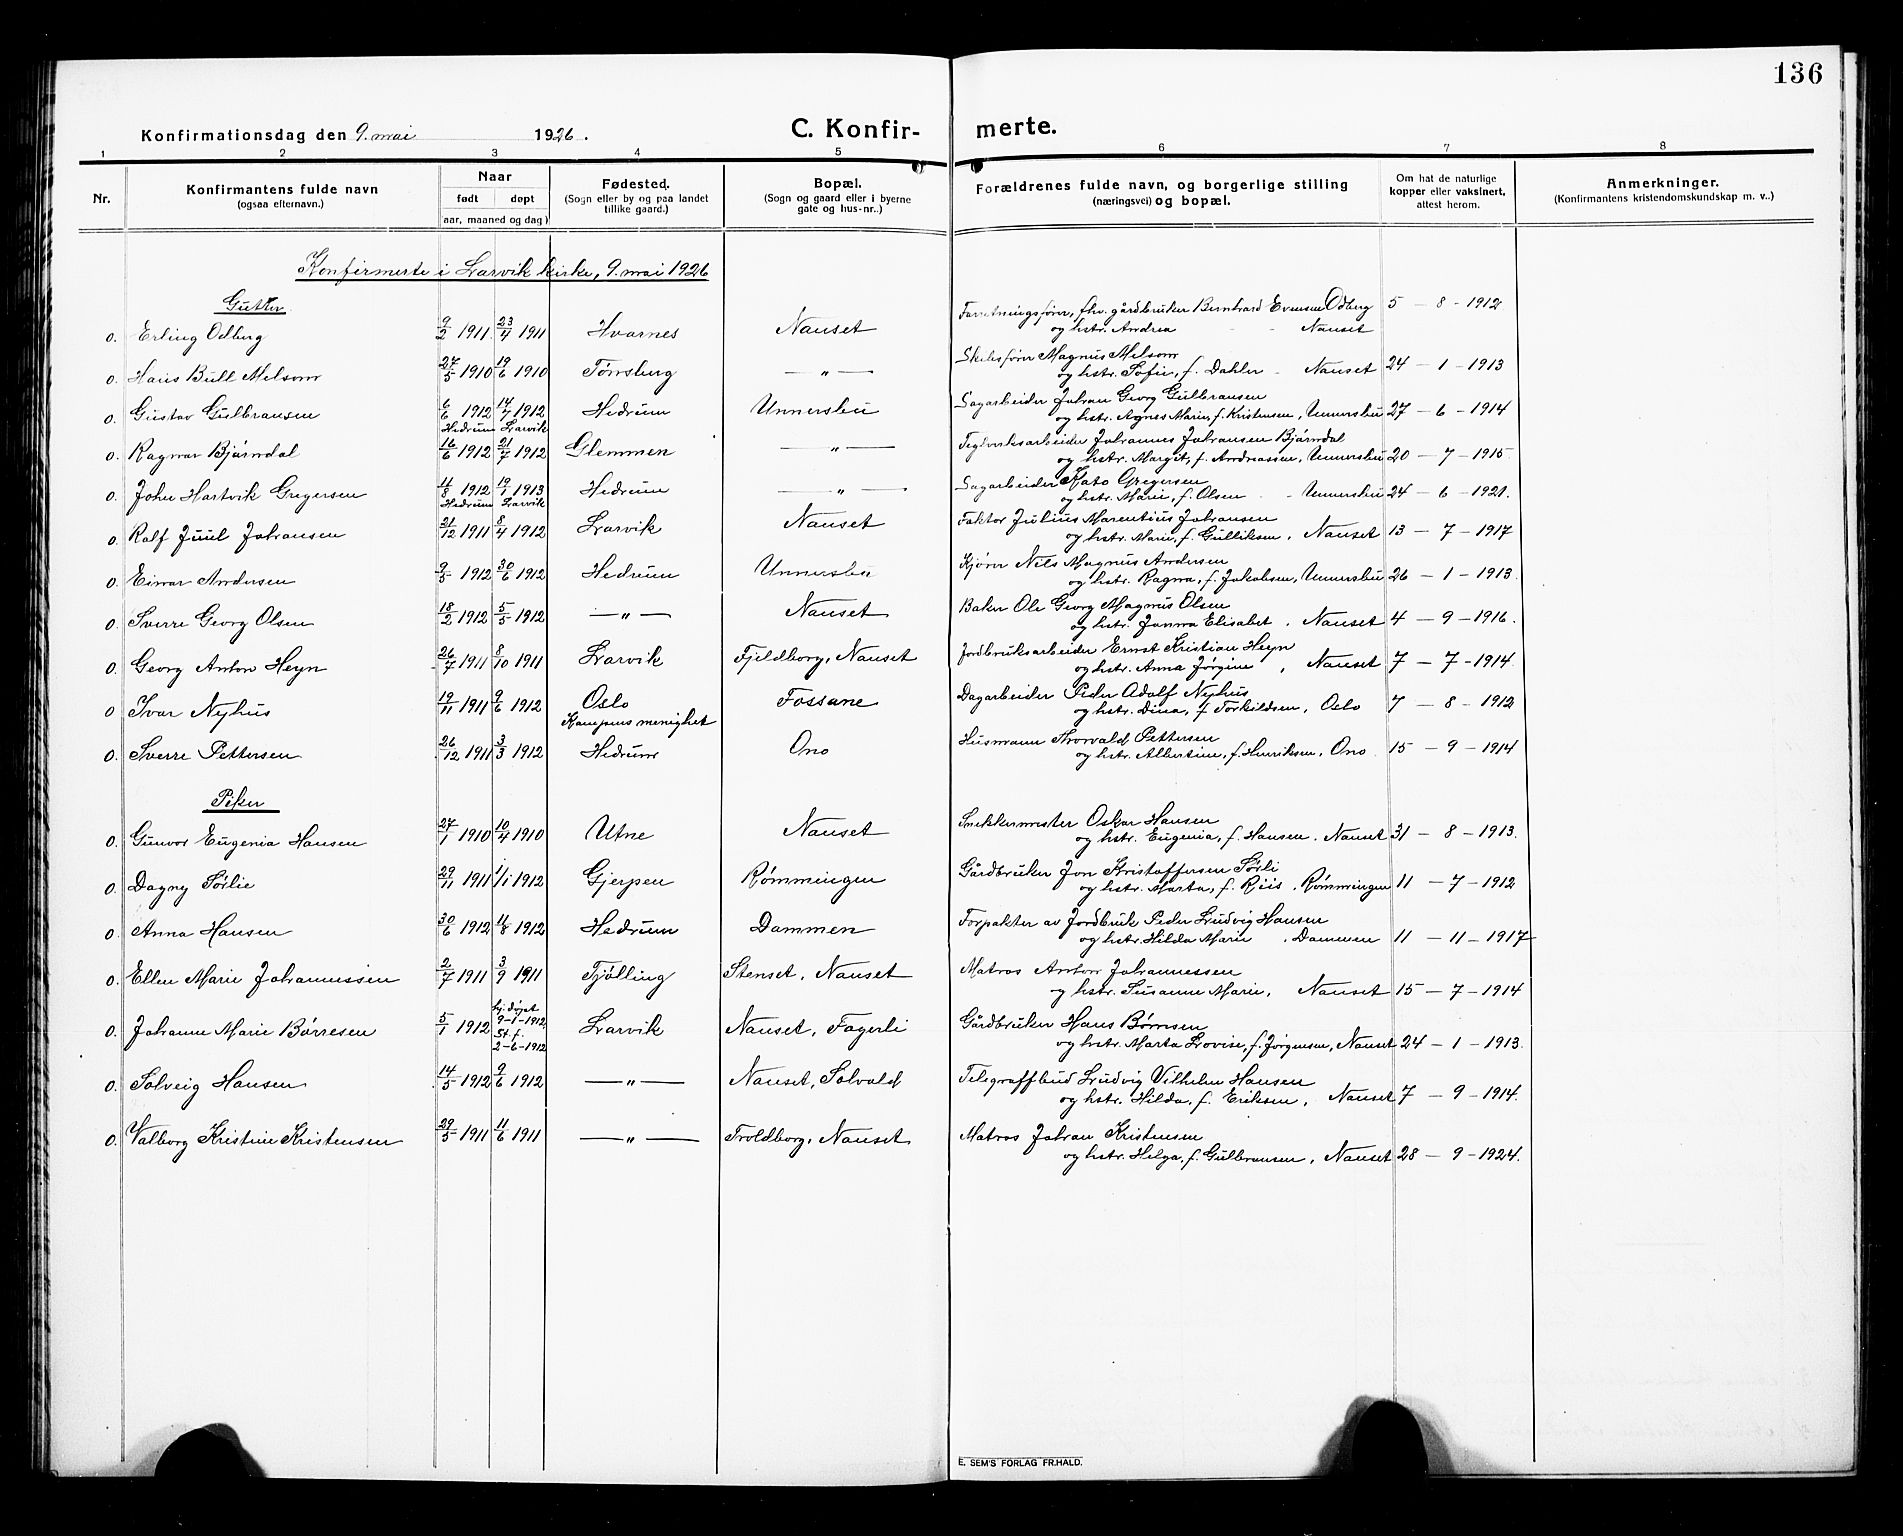 136
Konfirmationsdag den 9. mai 1926.
C. Konfirmerte.
1 2 3 4 5 6 7 8
Nr. Konfirmantens fulde navn (ogsaa efternavn.) Naar født døpt aar, maaned og dag) Fødested. (Sogn eller by og paa landet tillike gaard.) Bopæl. (Sogn og gaard eller i byerne gate og hus-nr..) Forældrenes fulde navn, og borgerlige stilling (næringsvei) og bopæl. Om hat de naturlige kopper eller vaksinert, attest herom. Anmerkninger. (Konfirmantens kristendomskundskap m. v..)
Konfirmerte i Larvik kirke, 9. mai 1926
Gutter
o. Erling Odberg 9/2 1911 23/4 1911 Hvarnes Nanset Forretningsfører, fhv. gårdbruker Bernhard Evensen Odberg 5 - 8 - 1912
og hstr. Andrea - - Nanset
o. Hans Bull Melsom 27/5 1910 19/6 1910 Tønsberg — „ — Skibsfører Magnus Melsom
og hstr. Sofie, f. Dahler - Nanset 24 - 1 - 1913
o. Gustav Gulbransen 6/6 1912 14/7 1912 Hedrum Unnersbu Sagarbeider Johan Georg Gulbransen
Hedrum Larvik og hstr. Agnes Marie, f. Kristensen, Unnersbu 27 - 6 - 1914
o. Ragnar Bjørndal 16/6 1912 21/7 1912 Glemmen — „ — Teglverksarbeider Johannes Johansen Bjørndal
og hstr. Margit, f. Andreassen, Unnersbu 20 - 7 - 1915
o. John Hartvik Gregersen 11/8 1912 19/1 1913 Hedrum — „ — Sagarbeider Kato Gregersen
Hedrum Larvik og hstr. Marie, f. Olsen - - Unnersbu 24 - 6 - 1921.
o. Rolf Juul Johansen 21/12 1911 8/4 1912 Larvik Nanset Faktor Julius Marentius Johansen
og hstr. Marie, f. Gulliksen, Nanset 13 - 7 - 1917
o. Einar Andersen 9/5 1912 30/6 1912 Hedrum Unnersbu Kjører Nils Magnus Andersen
og hstr. Ragna, f. Jakobsen, Unnersbu 26 - 1 - 1913.
o. Sverre Georg Olsen 18/2 1912 5/5 1912 — „ — Nanset Baker Ole Georg Magnus Olsen
og hstr. Janna Elisabet, Nanset 4 - 9 - 1916.
o. Georg Anton Heyn 26/7 1911 8/10 1911 Larvik Fjeldborg, Nanset Jordbruksarbeider Ernst Kristian Heyn
og hstr. Anna Jørgine, Nanset 7 - 7 - 1914.
o Ivar Nyhus 19/11 1911 9/6 1912 Oslo Fossane Dagarbeider Peder Adolf Nyhus
Kampens menighet og hstr. Dina, f. Torkildsen, Oslo 7 - 8 - 1912
o. Sverre Pettersen 26/12 1911 3/3 1912 Hedrum Ono Husmann Thorvald Pettersen
og hstr. Albertine, f. Henriksen, Ono. 15 - 9 - 1914
Piker
o. Gunvor Eugenia Hansen 27/1 1910 10/4 1910 Utne Nanset Snekkermester Oskar Hansen
og hstr. Eugenia, f. Hansen. Nanset 31 - 8 - 1913.
o. Dagny Sørlie 29/11 1911 1/1 1912 Gjerpen Rømmingen Gårdbruker Jon Kristoffersen Sørli
og hstr. Marta, f. Riis, Rømmingen 11 - 7 - 1912
o. Anna Hansen 30/6 1912 11/8 1912 Hedrum Dammen Forpakter av Jordbruk Peder Ludvig Hansen
og hstr. Hilda Marie, Dammen 11 - 11 - 1917
o. Ellen Marie Johannessen 2/7 1911 3/9 1911 Tjølling Stenset, Nanset Matros Anton Johannessen
og hstr. Susanne Marie, Nanset 15 - 7 - 1914
o. Johanne Marie Børresen 5/1 1912 hj. døpt 9-1-1912. St. f. 2-6-1912 Larvik Nanset, Fagerli Gårdbruker Hans Børresen
og hstr. Marta Lovise, f. Jørgensen, Nanset 24 - 1 - 1913.
o. Solveig Hansen 14/5 1912 9/6 1912 — „ — Nanset, Solvold Telegrafbud Ludvig Vilhelm Hansen
og hstr. Hilda, f. Eriksen, Nanset 7 - 9 - 1914.
o. Valborg Kristine Kristensen 29/5 1911 11/6 1911 — „ — Troldborg, Nanset Matros Johan Kristensen
og hstr. Helga, f. Gulbransen, Nanset 28 - 9 - 1924.
E. SEM'S FORLAG FR.HALD.